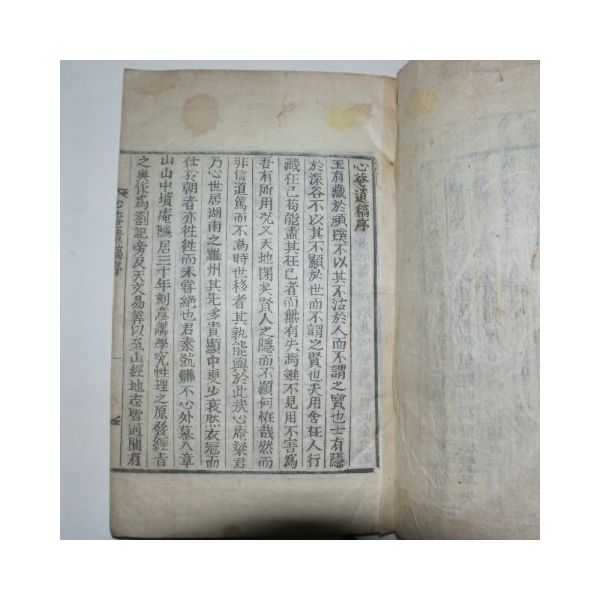 心菴遺稿序
玉有藏於頑璞不以其不沽於人而不謂之寶也士有隱
於深谷不以其不顯於世而不謂之賢也夫用舍在人行
藏在己苟能盡其在己者而無有失焉雖不見用不害爲
吾有所用況又天地閉矣賢人之隱而不顯何恠哉然而
非信道篤而不爲時世移者其孰能與於此哉心庵梁君
乃心世居湖南之羅州其先多貴顯中更少衰然衣冠而
仕於朝者亦徃徃而未嘗絶也君素骯髒不心外慕入章
山山中墳庵隱居三十年刻意講學究性理之原發經旨
之奧作爲劄記旁及天文易筭以至山經地志皆通關有
心菴遺稿序
一